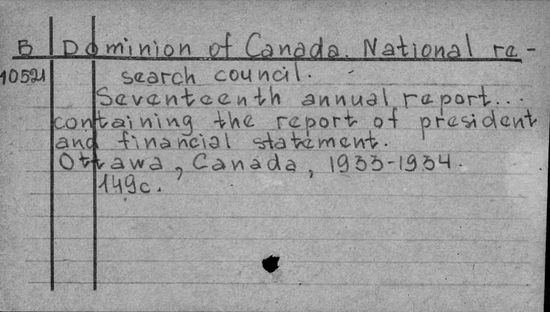 Б Dominion of Canada. National re-
10521 search council.
Seventeenth annual report...
containing the report of president
and financial statement.
Ottawa, Canada, 1933-1934.
149c.